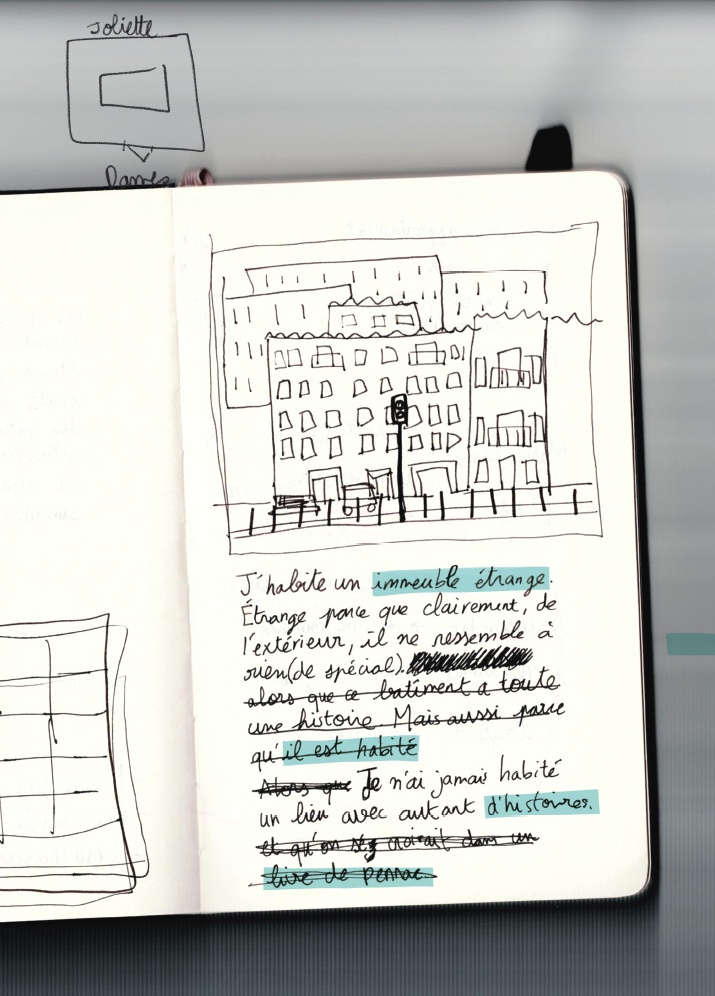 Joliette
Dames
J'habite un immeuble étrange.
Étrange parce que clairement, de
l'extérieur, il ne ressemble à
rien (de spécial).
alors que ce batîment a toute
une histoire. Mais aussi parce
qu'il est habité
Alors que Je n'ai jamais habité
un lieu avec autant d'histoires.
et qu'on s'y croirait dans un
livre de pennac.